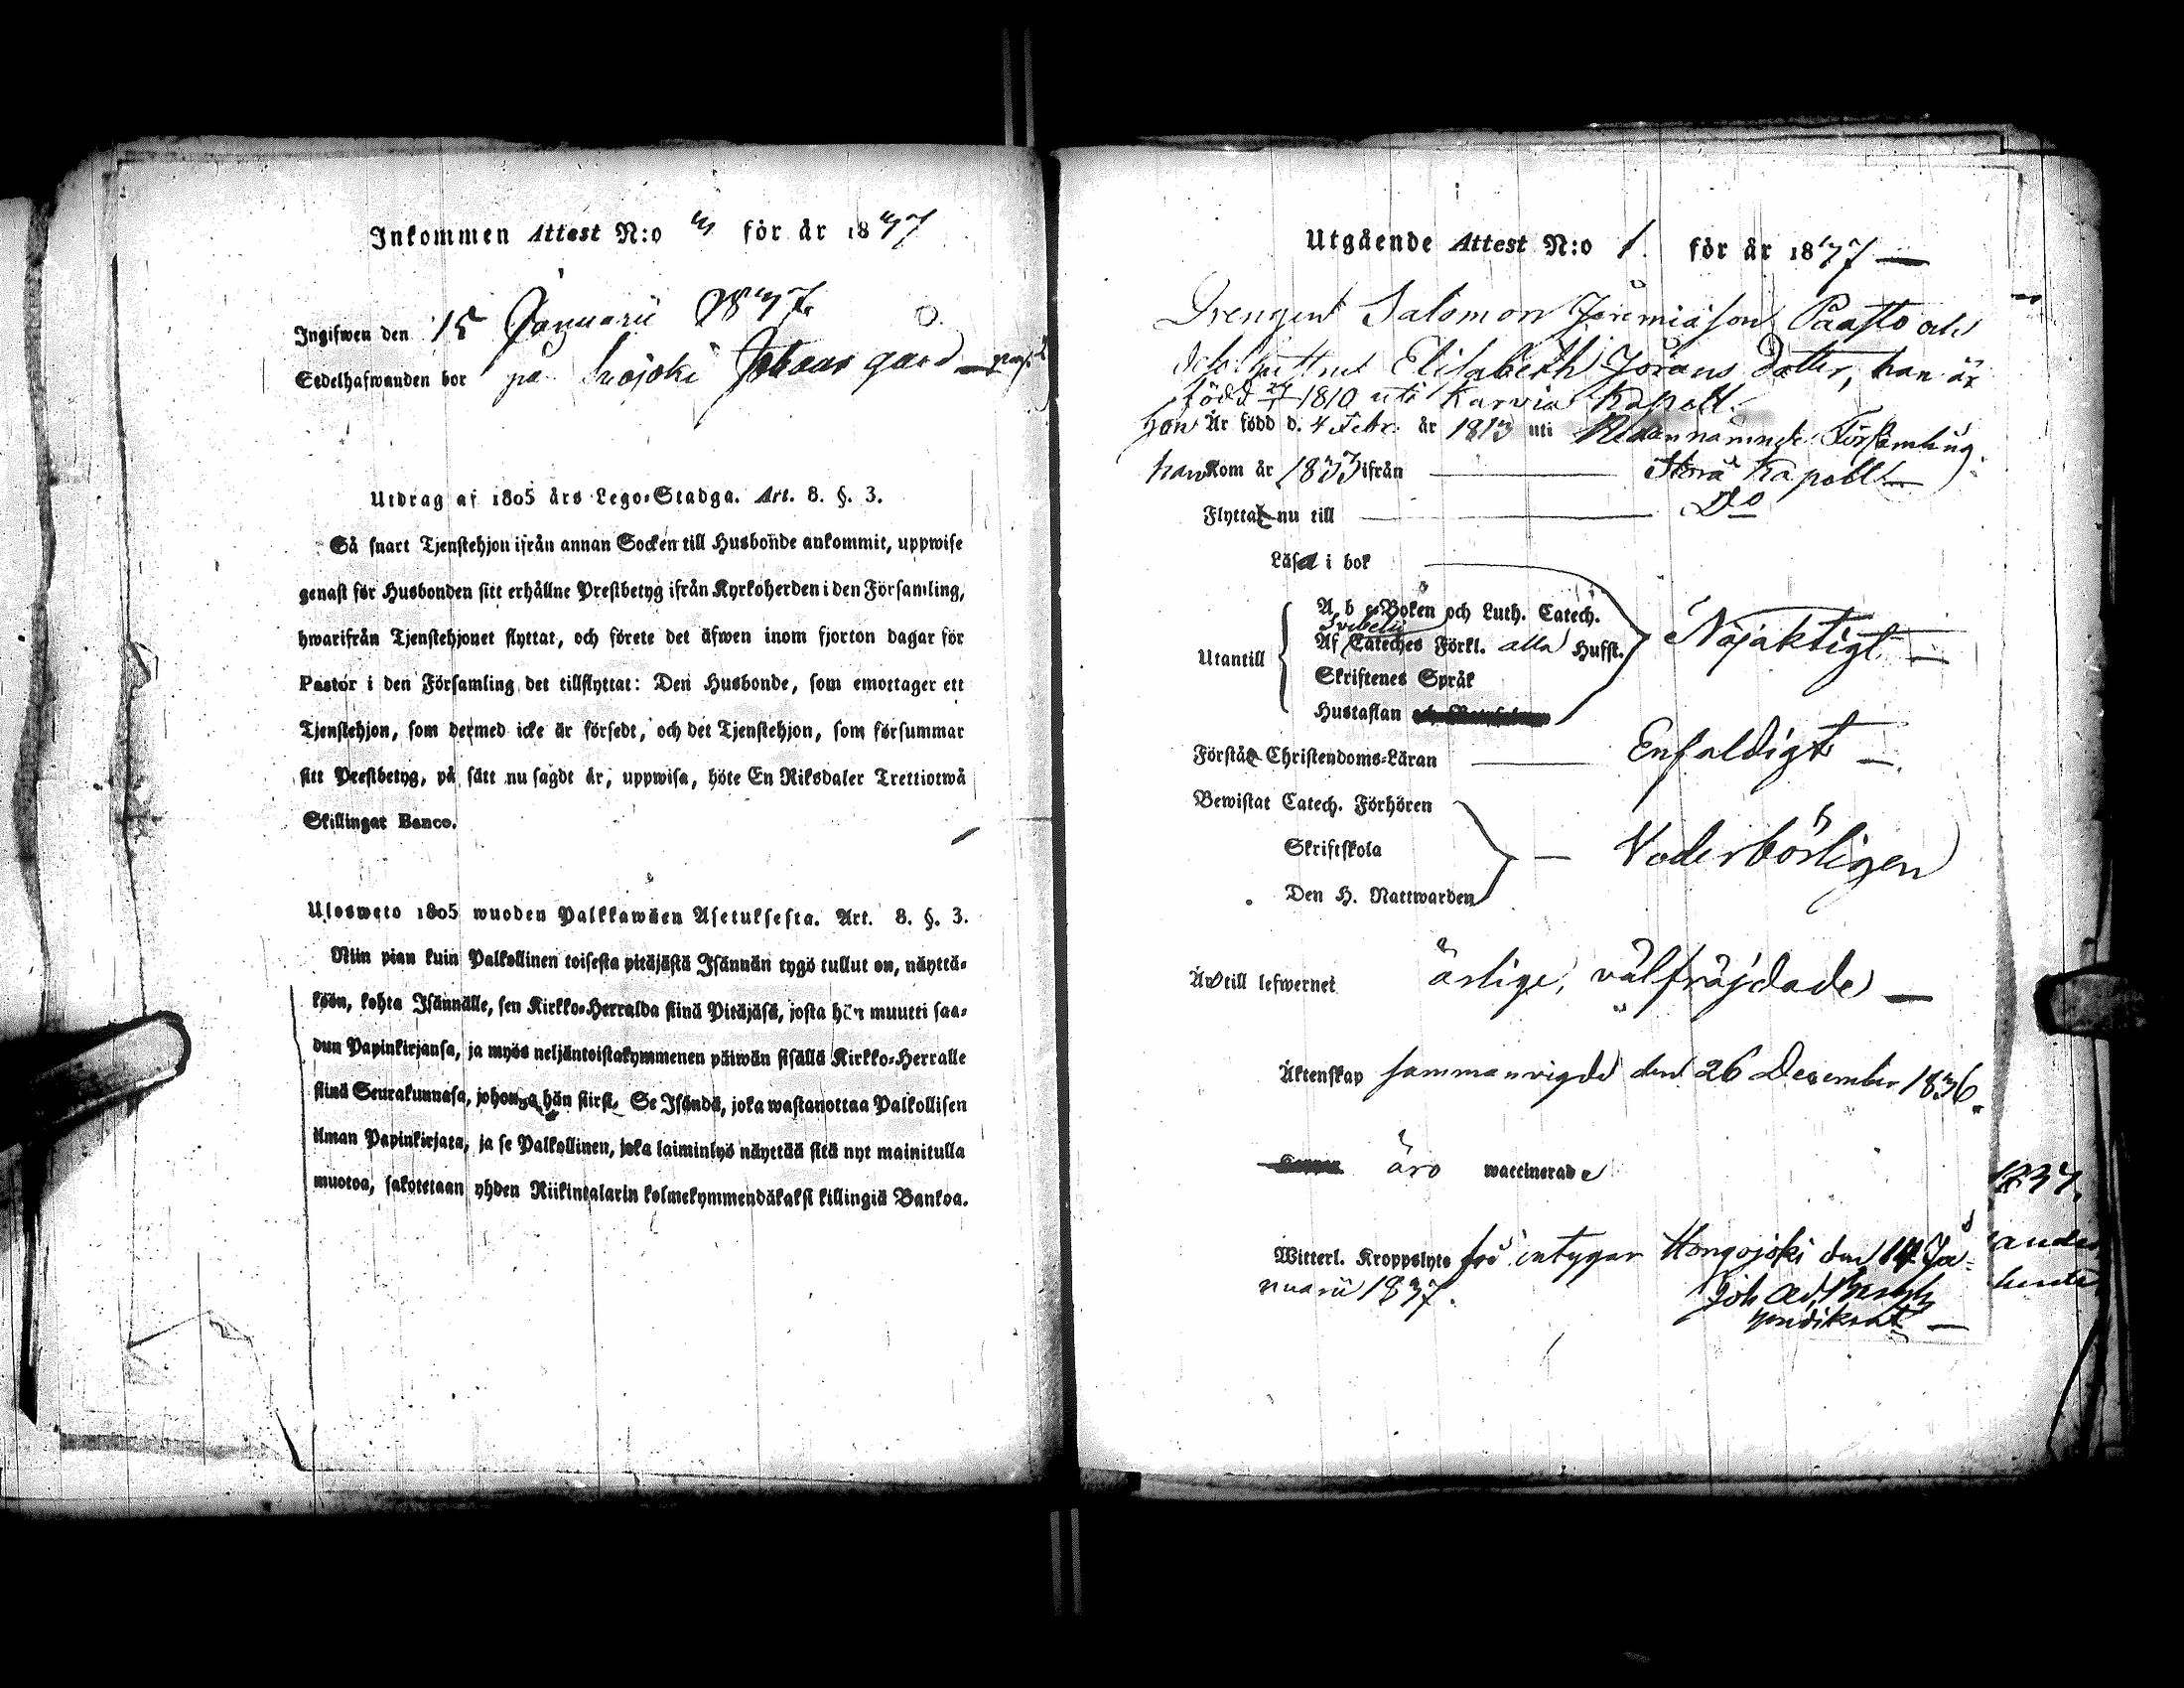 Inkommen Attest N:o 3 för år 1837
Ingifwen den 15 Januarii 1837.
Sedelhafwanden bor på gård
Utdrag af 1805 års Lego-Stadga. Art. 8. §. 3.
Så snart Tjenstehjon ifrån annan Socken till Husbonde ankommit, uppwise
genast för Husbonden sitt erhållne Prestbetyg ifrån Kyrkoherden i den Församling,
hwarifrån Tjenstehjonet flyttat, och förete det äfwen inom fjorton dagar för
Pastor i den Församling det tillflyttat: Den Husbonde, som emottager ett
Tjenstehjon, som dermed icke är försedt, och det Tjenstehjon, som försummar
sitt Prestbetyg, på sätt nu sagdt är, uppwisa, böte En Riksdaler Trettiotwå
Skillingar Banco.
Ulosweto 1805 wuoden Palkkawäen Asetuksesta. Art. 8. §. 3.
Niin pian kuin Palkollinen toisesta pitäjästä Isännän tygö tullut on, näyttä-
köön, kohta Isännälle, sen Kirkko-Herralda siinä Pitäjäsä, josta hän muutti saa-
dun Papinkirjansa, ja myös neljäntoistakymmenen päiwän sisällä Kirkko-Herralle
siinä Seurakunnasa, johonga hän siirsi. Se Isändä, joka wastanottaa Palkollisen
ilman Papinkirjata, ja se Palkollinen, joka laiminlyö näyttää sitä nyt mainitulla
muotoa, sakotetaan yhden Riikintalarin kolmekymmendäkaksi killingiä Bankoa.
Utgående Attest N:o 1. för år 1837 —
Drengen Salomon Jeremiäson Paasto och
dess hustru Elisabeth Jörans dotter, han är
född 1810 uti Karvia Kapell.
hon Är född d. 4 Febr. år 1813 uti Redannämnde Församling.
han Kom år 1833 ifrån — Storå Kapell —
Flytta nu till — Do
Läsa i bok
A b c-Boken och Luth. Catech.
Svebelii
Utantill Af Cateches Förkl. alla Hufst. Nöjaktigt —
Skriftenes Språk
Hustaflan
Förstå Christendoms-Läran — Enfaldigt —
Bewistat Catech. Förhören
Skriftskola — Vederbörligen
Den H. Nattwarden
Äro till lefwernet ärlige, välfräjdade —
Äktenskap sammanvigde den 26 December 1836.
äro waccinerade
Witterl. Kroppslyte fri intygar Hongojoki den 14 Ja-
nuarii 1837.
Joh. Ad.